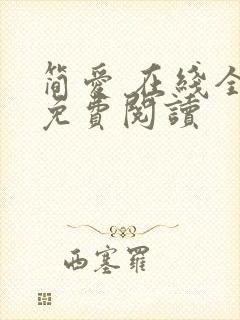 简爱 在綫全
免費閱讀
西塞羅